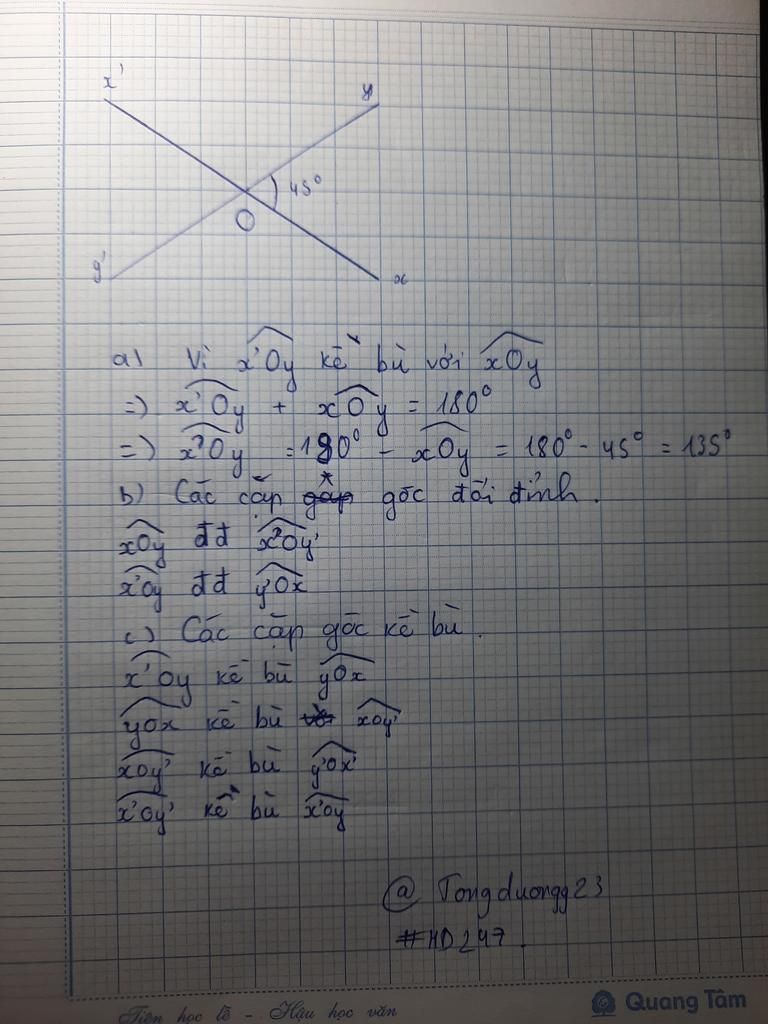 x'
y
45°
O
y'
x
a) Vì x'Oy kề bù với xOy
=) x'Oy + xOy = 180°
=) x'Oy = 180° - xOy = 180° - 45° = 135°
b) Các cặp góc đối đỉnh.
xOy đđ x'Oy'
x'Oy đđ y'Ox
c) Các cặp góc kề bù.
x'Oy kề bù yOx
yOx kề bù xOy'
xOy' kề bù y'Ox'
x'Oy' kề bù x'Oy
@ Tongduongg23
#HD247
Tiên học lễ - Hậu học văn
Quang Tâm